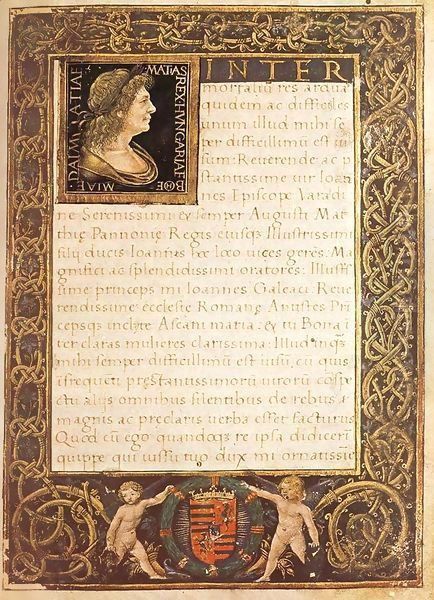 MATIAS REX HVNGARIAE BOE MIAE DALM
INTER
mortaliū res ardua
quidem ac difficiles
unum illud mihi se
ter difficillimū est
sum: Reverende ac p
stantissime uir Ioan
nes Episcope Varadi
ne Serenissimi & semper Augusti Mat
thię Pannonię Regis eiusq; Illustrissimi
filij ducis Ioannis hoc loco uices gerēs: Ma
gnifici ac splendidissimi oratores: Illustris
sime princeps mi Ioannes Galeaci Reue
rendissime ecclesie Romanę Antistes Prī
cepsq; inclyte Ascani maria: & tu Bona i
ter claras mulieres clarissima: Illud
mihi semper difficillimū est uisū, cū quis
ī frequēti pręstantissimorū uirorū cōspe
ctu alijs omnibus silentibus de rebus
magnis ac preclaris uerba esset facturus
Quod cū ego quandoq; re ipsa didiceri
quippe qui iussu tuo dux mi ornatissie